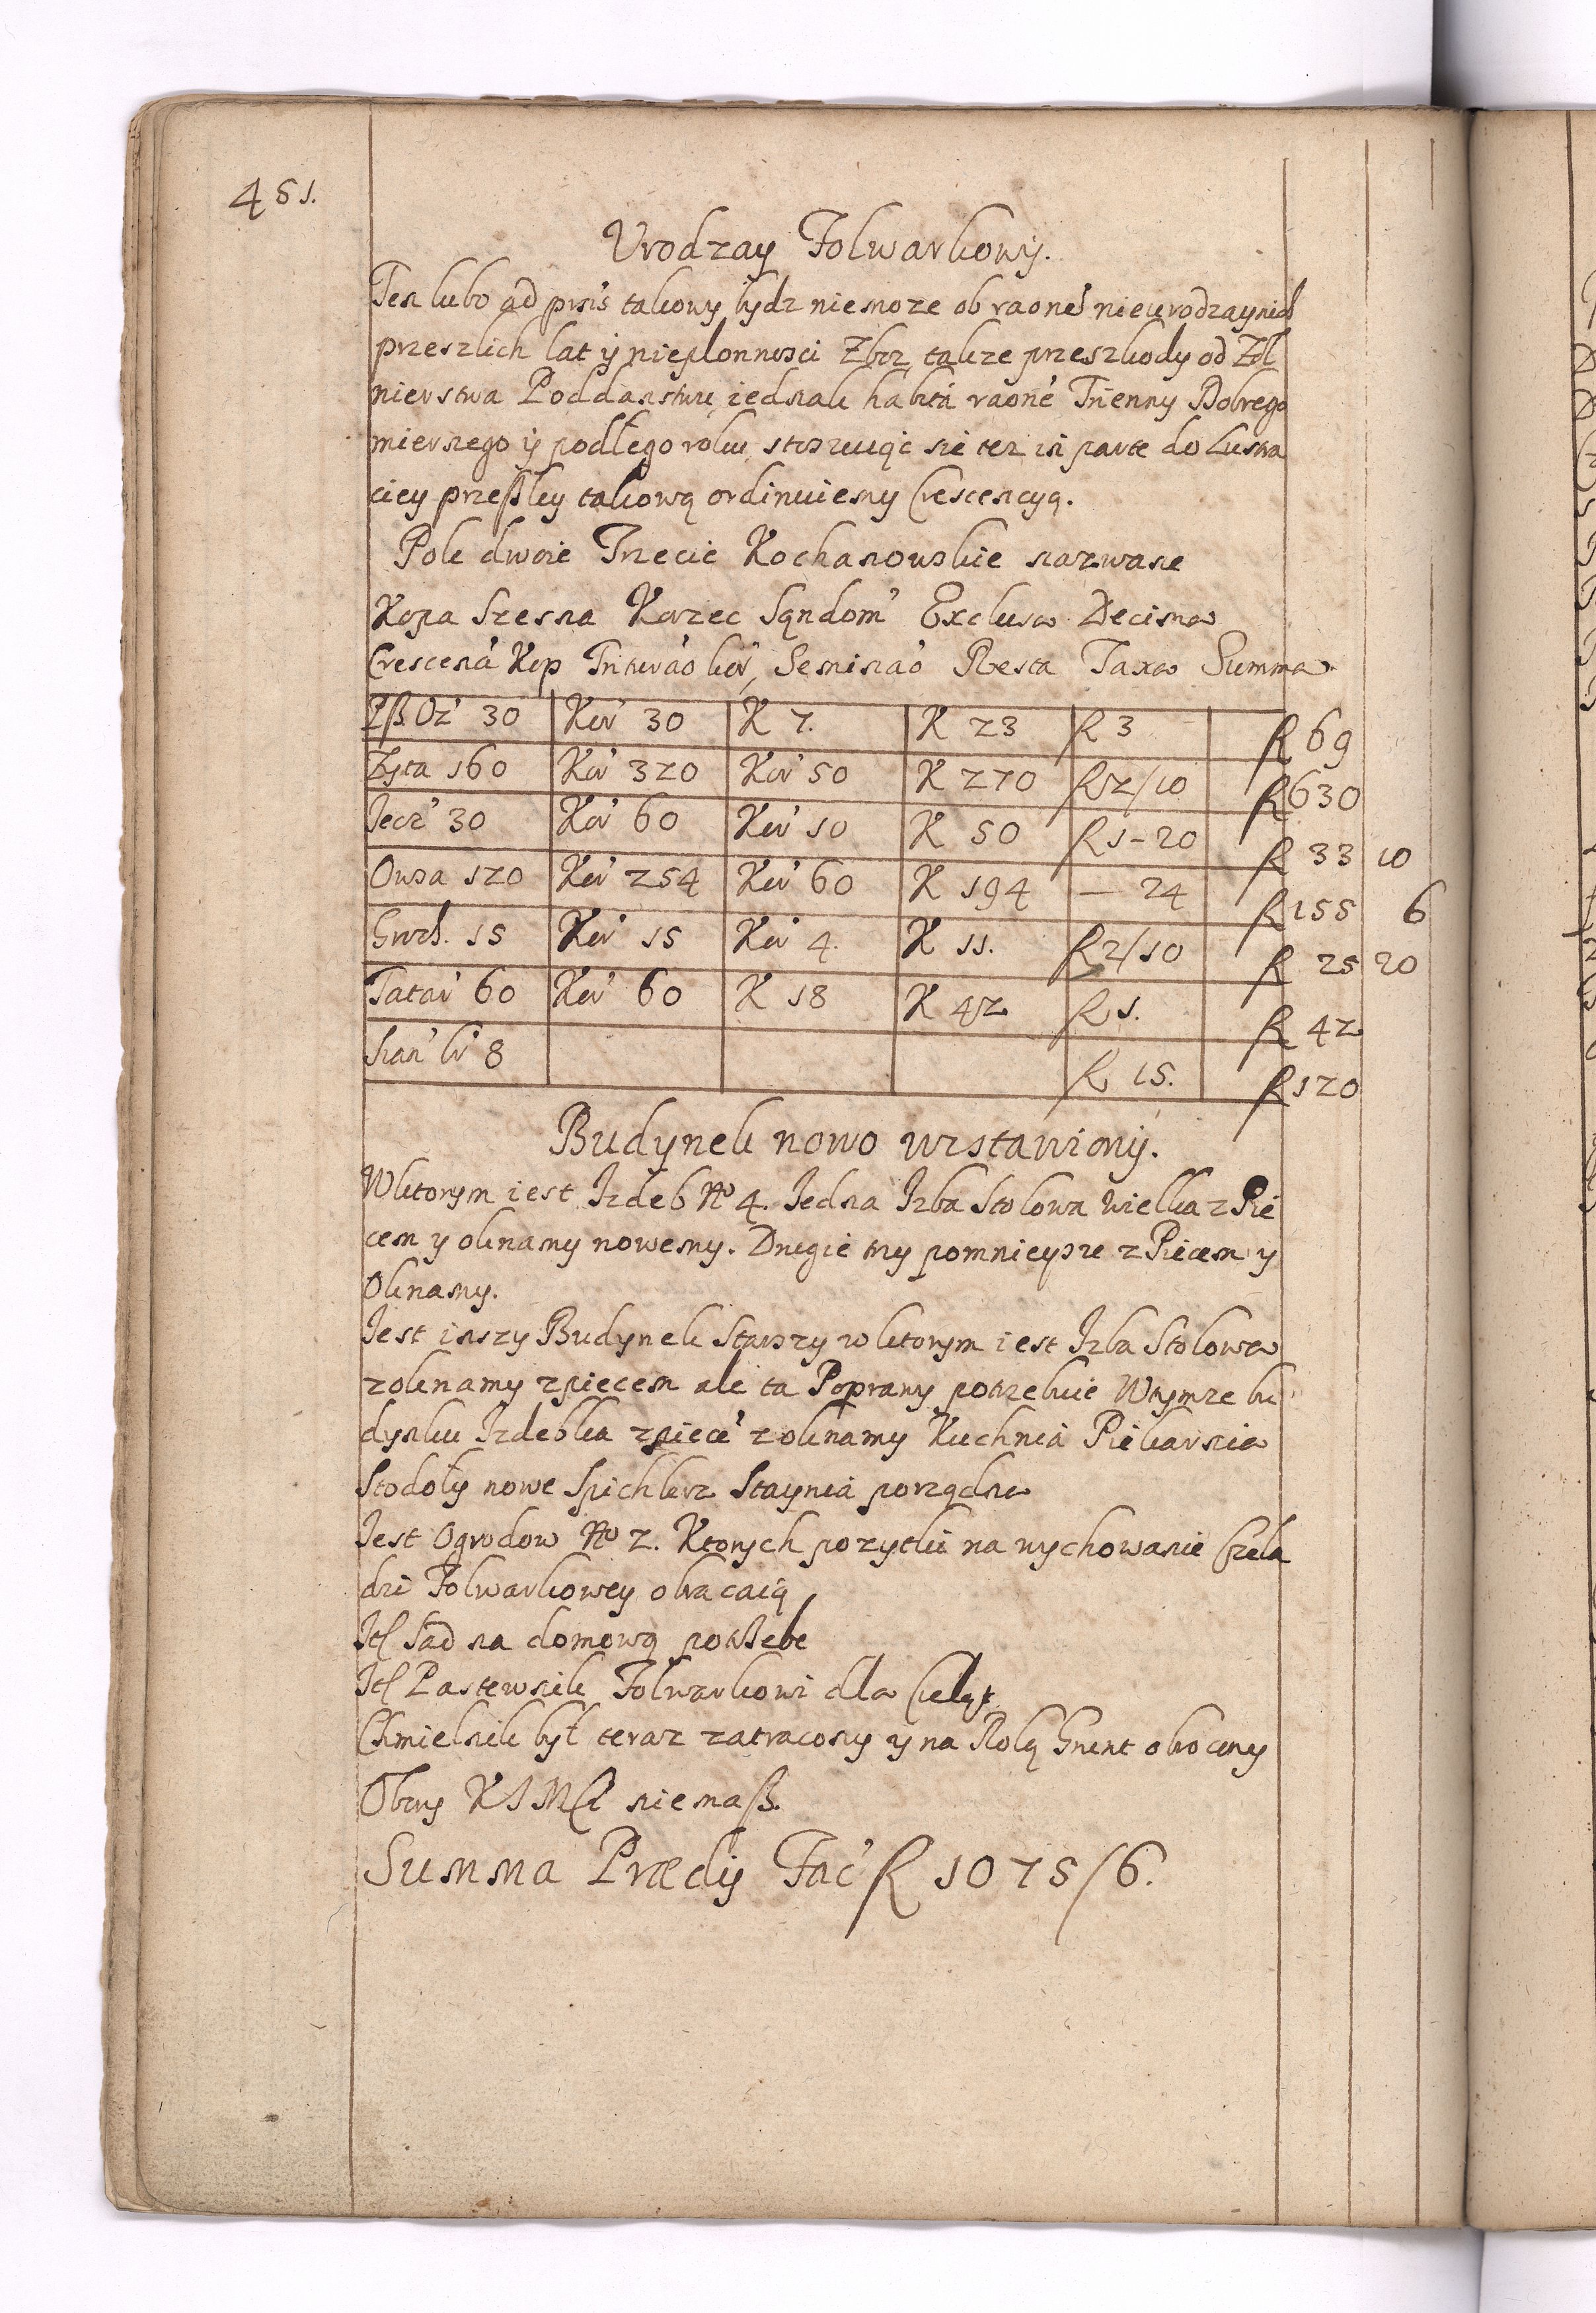 451.
Urodzay Folwarkowy.
Ten lubo ad pns takowy bydz niemoze ob raone nieurodzaynich
przeszlich lat y nieplonnosci Zboz, takze przeszkody od Zoł
nierstwa Poddanstwu, iednak habita raone Trienny Dobrego
miernego y podłego roku stosuiąc sie tez in parte do Lustra
ciey przeßley takową ordinuiemy Crescencyą.
Pole dwoie Trzecie Kochanowskie nazwane
Kopa Szesna Korzec Sąndom Exclusa Decima
Crescena Kop Triturao kor, Seminao Resta Taxa Summa
Pß. Oz 30 Kor 30 K 7. K 23 R 3 R 69
Zyta 160 Kor 320 Kor 50 K 270 R 2/10 R 630
Jecz 30 Kor 60 Kor 10 K 50 R 1-20 R 33 10
Owsa 120 Kor 254 Kor 60 K 194 — 24 R 155 6
Groch. 15 Kor 15 Kor 4. K 11. R 2/10 R 25 20
Tatar 60 Kor 60 K 18 K 42 R 1. R 42
Sian br 8 R 15. R 120
Budynek nowo wystawiony.
Wktorym iest Izdeb No 4. Jedna Izba Stolowa wielka z Pie
cem y oknamy nowemy. Drugie trzy pomnieysze z Piecem y
Oknamy.
Jest inszy Budynek Starszy w ktorym iest Izba Stolowa
z oknamy z piecem ale ta Poprawy potrzebuie Wtymze bu
dynku Izdebka z piece z oknamy Kuchnia Piekarnia
Stodoły nowe Spichlerz Staynia porządna
Jest Ogrodow No 2. Ktorych pozytki na wychowanie Czela
dzi Folwarkowey obracaią
Itl Sad na domową potrzebe
Itl Pastewnik Folwarkowi dla Cieląt
Chmielnik był teraz zatracony y na Rolą Grunt obrocony
Obory KJMCi niemaß.
Summa Prædij Fac R 1075/6.